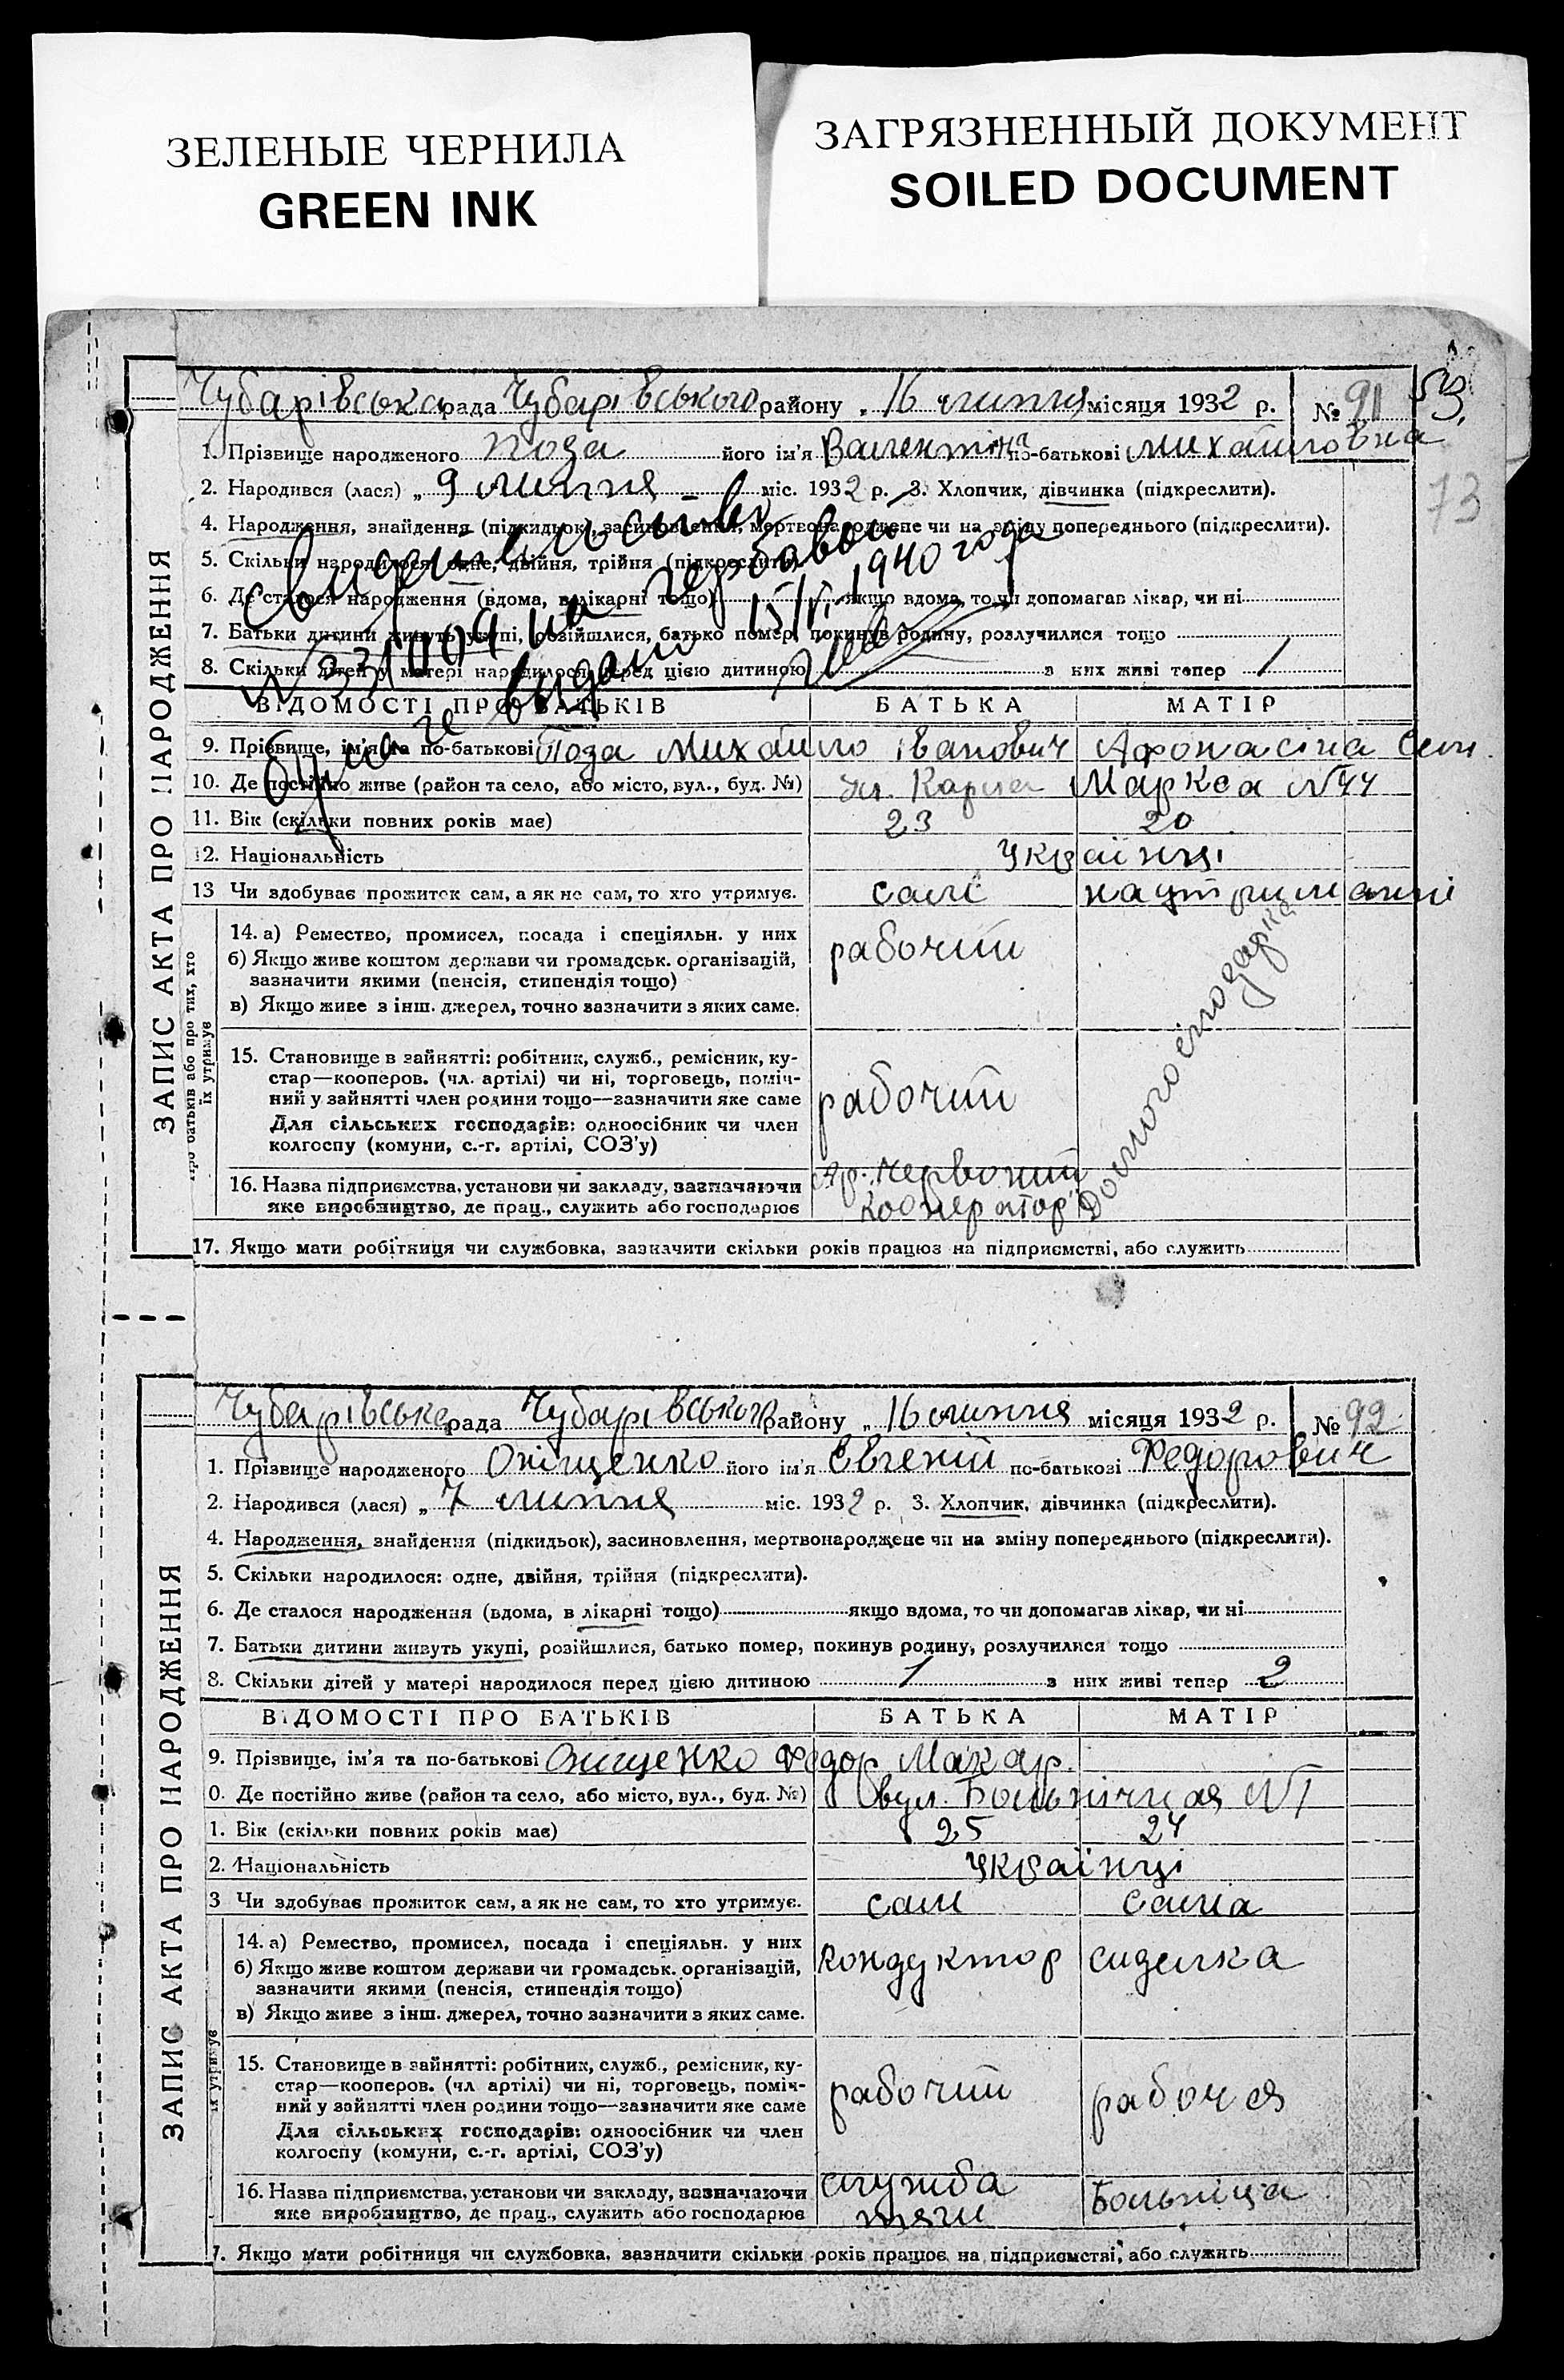 ЗЕЛЕНЫЕ ЧЕРНИЛА
GREEN INK
ЗАГРЯЗНЕННЫЙ ДОКУМЕНТ
SOILED DOCUMENT
ЗАПИС АКТА ПРО НАРОДЖЕННЯ
Чубарівська рада Чубарівського району „ 16 липня місяця 1932 р. № 91
53
73
1. Прізвище народженого Поза його ім'я Валентіна по-батькові Михайловна
2. Народився (лася) „ 9 липня міс. 1932 р. 3. Хлопчик, дівчинка (підкреслити).
4. Народження, знайдення (підкидьок), засиновлення, мертвонароджене чи на зміну попереднього (підкреслити).
5. Скільки народилося: одне, двійня, трійня (підкреслити).
6. Де сталося народження (вдома, в лікарні тощо) якщо вдома, то чи допомагав лікар, чи ні
7. Батьки дитини живуть укупі, розійшлися, батько помер, покинув родину, розлучилися тощо
8. Скільки дітей у матері народилося перед цією дитиною з них живі тепер 1
Свидетельство
на гербовой
бумаге выдано 15/VI-1940 года
ВІДОМОСТІ ПРО БАТЬКІВ БАТЬКА МАТІР
9. Прізвище, ім'я та по-батькові Поза Михайло Іванович Афонасіна
10. Де постійно живе (район та село, або місто, вул., буд. №) ул. Карла Маркса №44
11. Вік (скільки повних років має) 23 20
12. Національність Українці
13 Чи здобуває прожиток сам, а як не сам, то хто утримує. сам на утриманні
про батьків або про тих, хто їх утримує
14. а) Ремество, промисел, посада і спеціяльн. у них рабочий
б) Якщо живе коштом держави чи громадськ. організацій,
зазначити якими (пенсія, стипендія тощо)
в) Якщо живе з інш. джерел, точно зазначити з яких саме.
15. Становище в зайнятті: робітник, служб., ремісник, ку-
стар—кооперов. (чл. артілі) чи ні, торговець, поміч-
ний у зайнятті член родини тощо—зазначити яке саме рабочий
Для сільських господарів: одноосібник чи член
колгоспу (комуни, с.-г. артілі, СОЗ'у)
16. Назва підприємства, установи чи закладу, зазначаючи Червоний
яке виробництво, де прац., служить або господарює кооператор
17. Якщо мати робітниця чи службовка, зазначити скільки років працює на підприємстві, або служить
ЗАПИС АКТА ПРО НАРОДЖЕННЯ
Чубарівська рада Чубарівського району „ 16 липня місяця 1932 р. № 92
1. Прізвище народженого Оніщенко його ім'я Евгеній по-батькові Федорович
2. Народився (лася) „ 7 липня міс. 1932 р. 3. Хлопчик, дівчинка (підкреслити).
4. Народження, знайдення (підкидьок), засиновлення, мертвонароджене чи на зміну попереднього (підкреслити).
5. Скільки народилося: одне, двійня, трійня (підкреслити).
6. Де сталося народження (вдома, в лікарні тощо) якщо вдома, то чи допомагав лікар, чи ні
7. Батьки дитини живуть укупі, розійшлися, батько помер, покинув родину, розлучилися тощо
8. Скільки дітей у матері народилося перед цією дитиною 1 з них живі тепер 2
ВІДОМОСТІ ПРО БАТЬКІВ БАТЬКА МАТІР
9. Прізвище, ім'я та по-батькові Онищенко Федор Макар.
0. Де постійно живе (район та село, або місто, вул., буд. №) вул. Больнічная №1
1. Вік (скільки повних років має) 25 24
2. Національність Українці
3 Чи здобуває прожиток сам, а як не сам, то хто утримує. сам сама
їх утримує
14. а) Ремество, промисел, посада і спеціяльн. у них кондуктор сиделка
б) Якщо живе коштом держави чи громадськ. організацій,
зазначити якими (пенсія, стипендія тощо)
в) Якщо живе з інш. джерел, точно зазначити з яких саме.
15. Становище в зайнятті: робітник, служб., ремісник, ку-
стар—кооперов. (чл артілі) чи ні, торговець, поміч-
ний у зайнятті член родини тощо—зазначити яке саме рабочий рабочая
Для сільських господарів: одноосібник чи член
колгоспу (комуни, с.-г. артілі, СОЗ'у)
16. Назва підприємства, установи чи закладу, зазначаючи служба Больніца
яке виробництво, де прац., служить або господарює тяги
7. Якщо мати робітниця чи службовка, зазначити скільки років працює на підприємстві, або служить